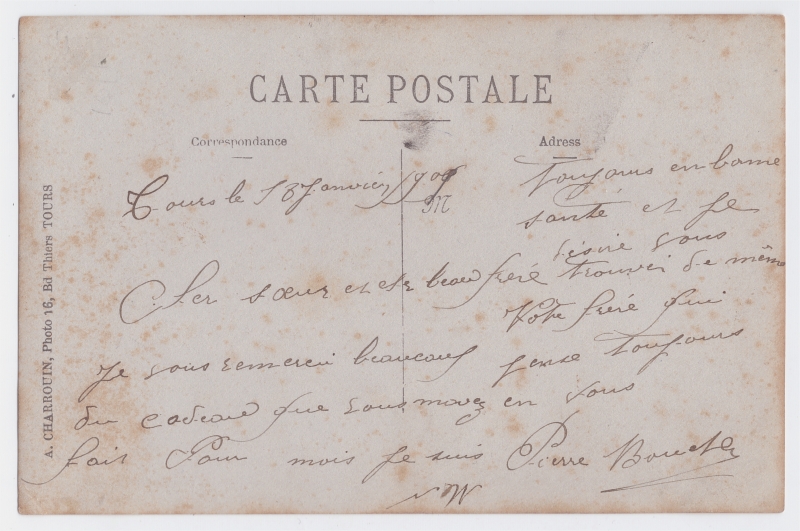 CARTE POSTALE
Correspondance
Adress
A. CHARROUIN, Photo 16, Bd Thiers TOURS
Tours le 18 Janvier
M
Cher sœur et cher beau frère
Je vous remerci beaucoup
du cadeau que vous mavez
fait Pour mois je suis
toujours en bonne
santé et je
désire vous
trouver de même
Votre frère qui
pense toujours
en vous
Pierre